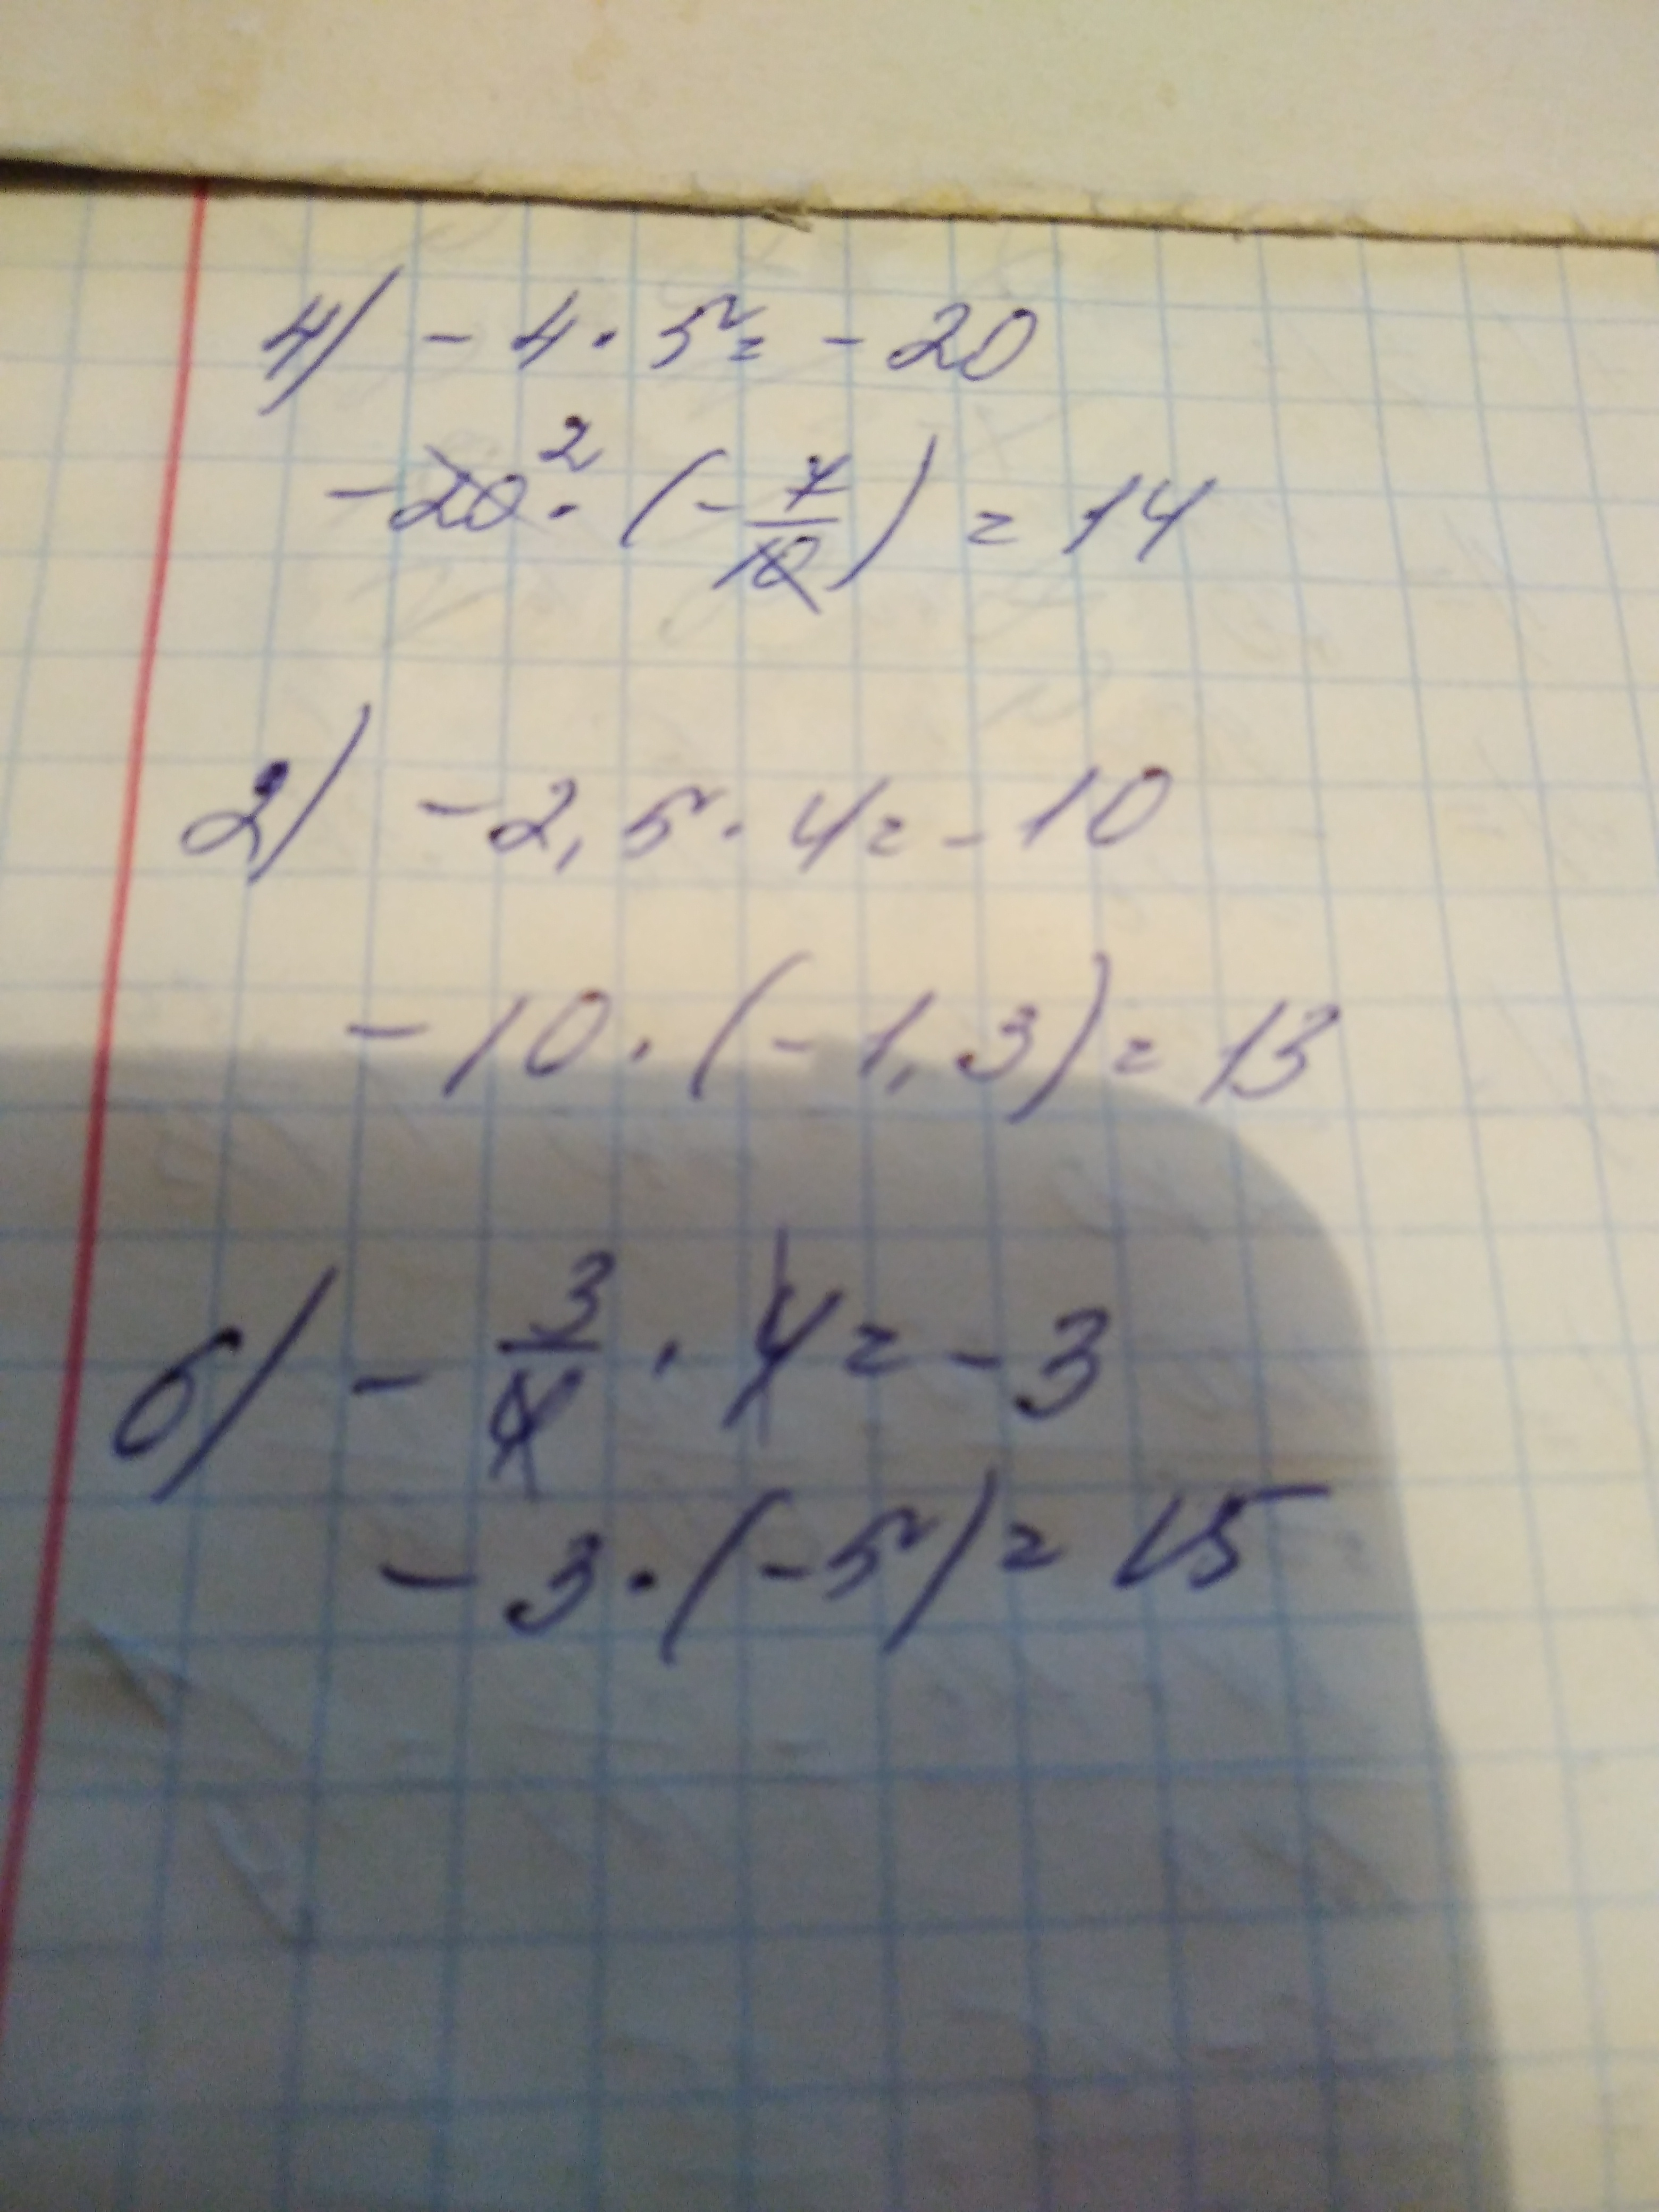 4) - 4 · 5 = - 20
- 20² · (- 7/10) = 14
2) - 2,5 · 4 = - 10
- 10 · (- 1,3) = 13
6) - 3/4 · 4 = - 3
- 3 · (- 5) = 15